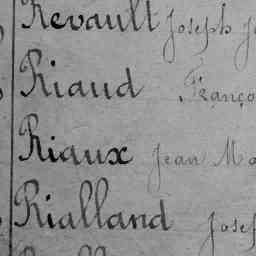 Revault Joseph
Riaud Franço
Riaux Jean Ma
Rialland Josep